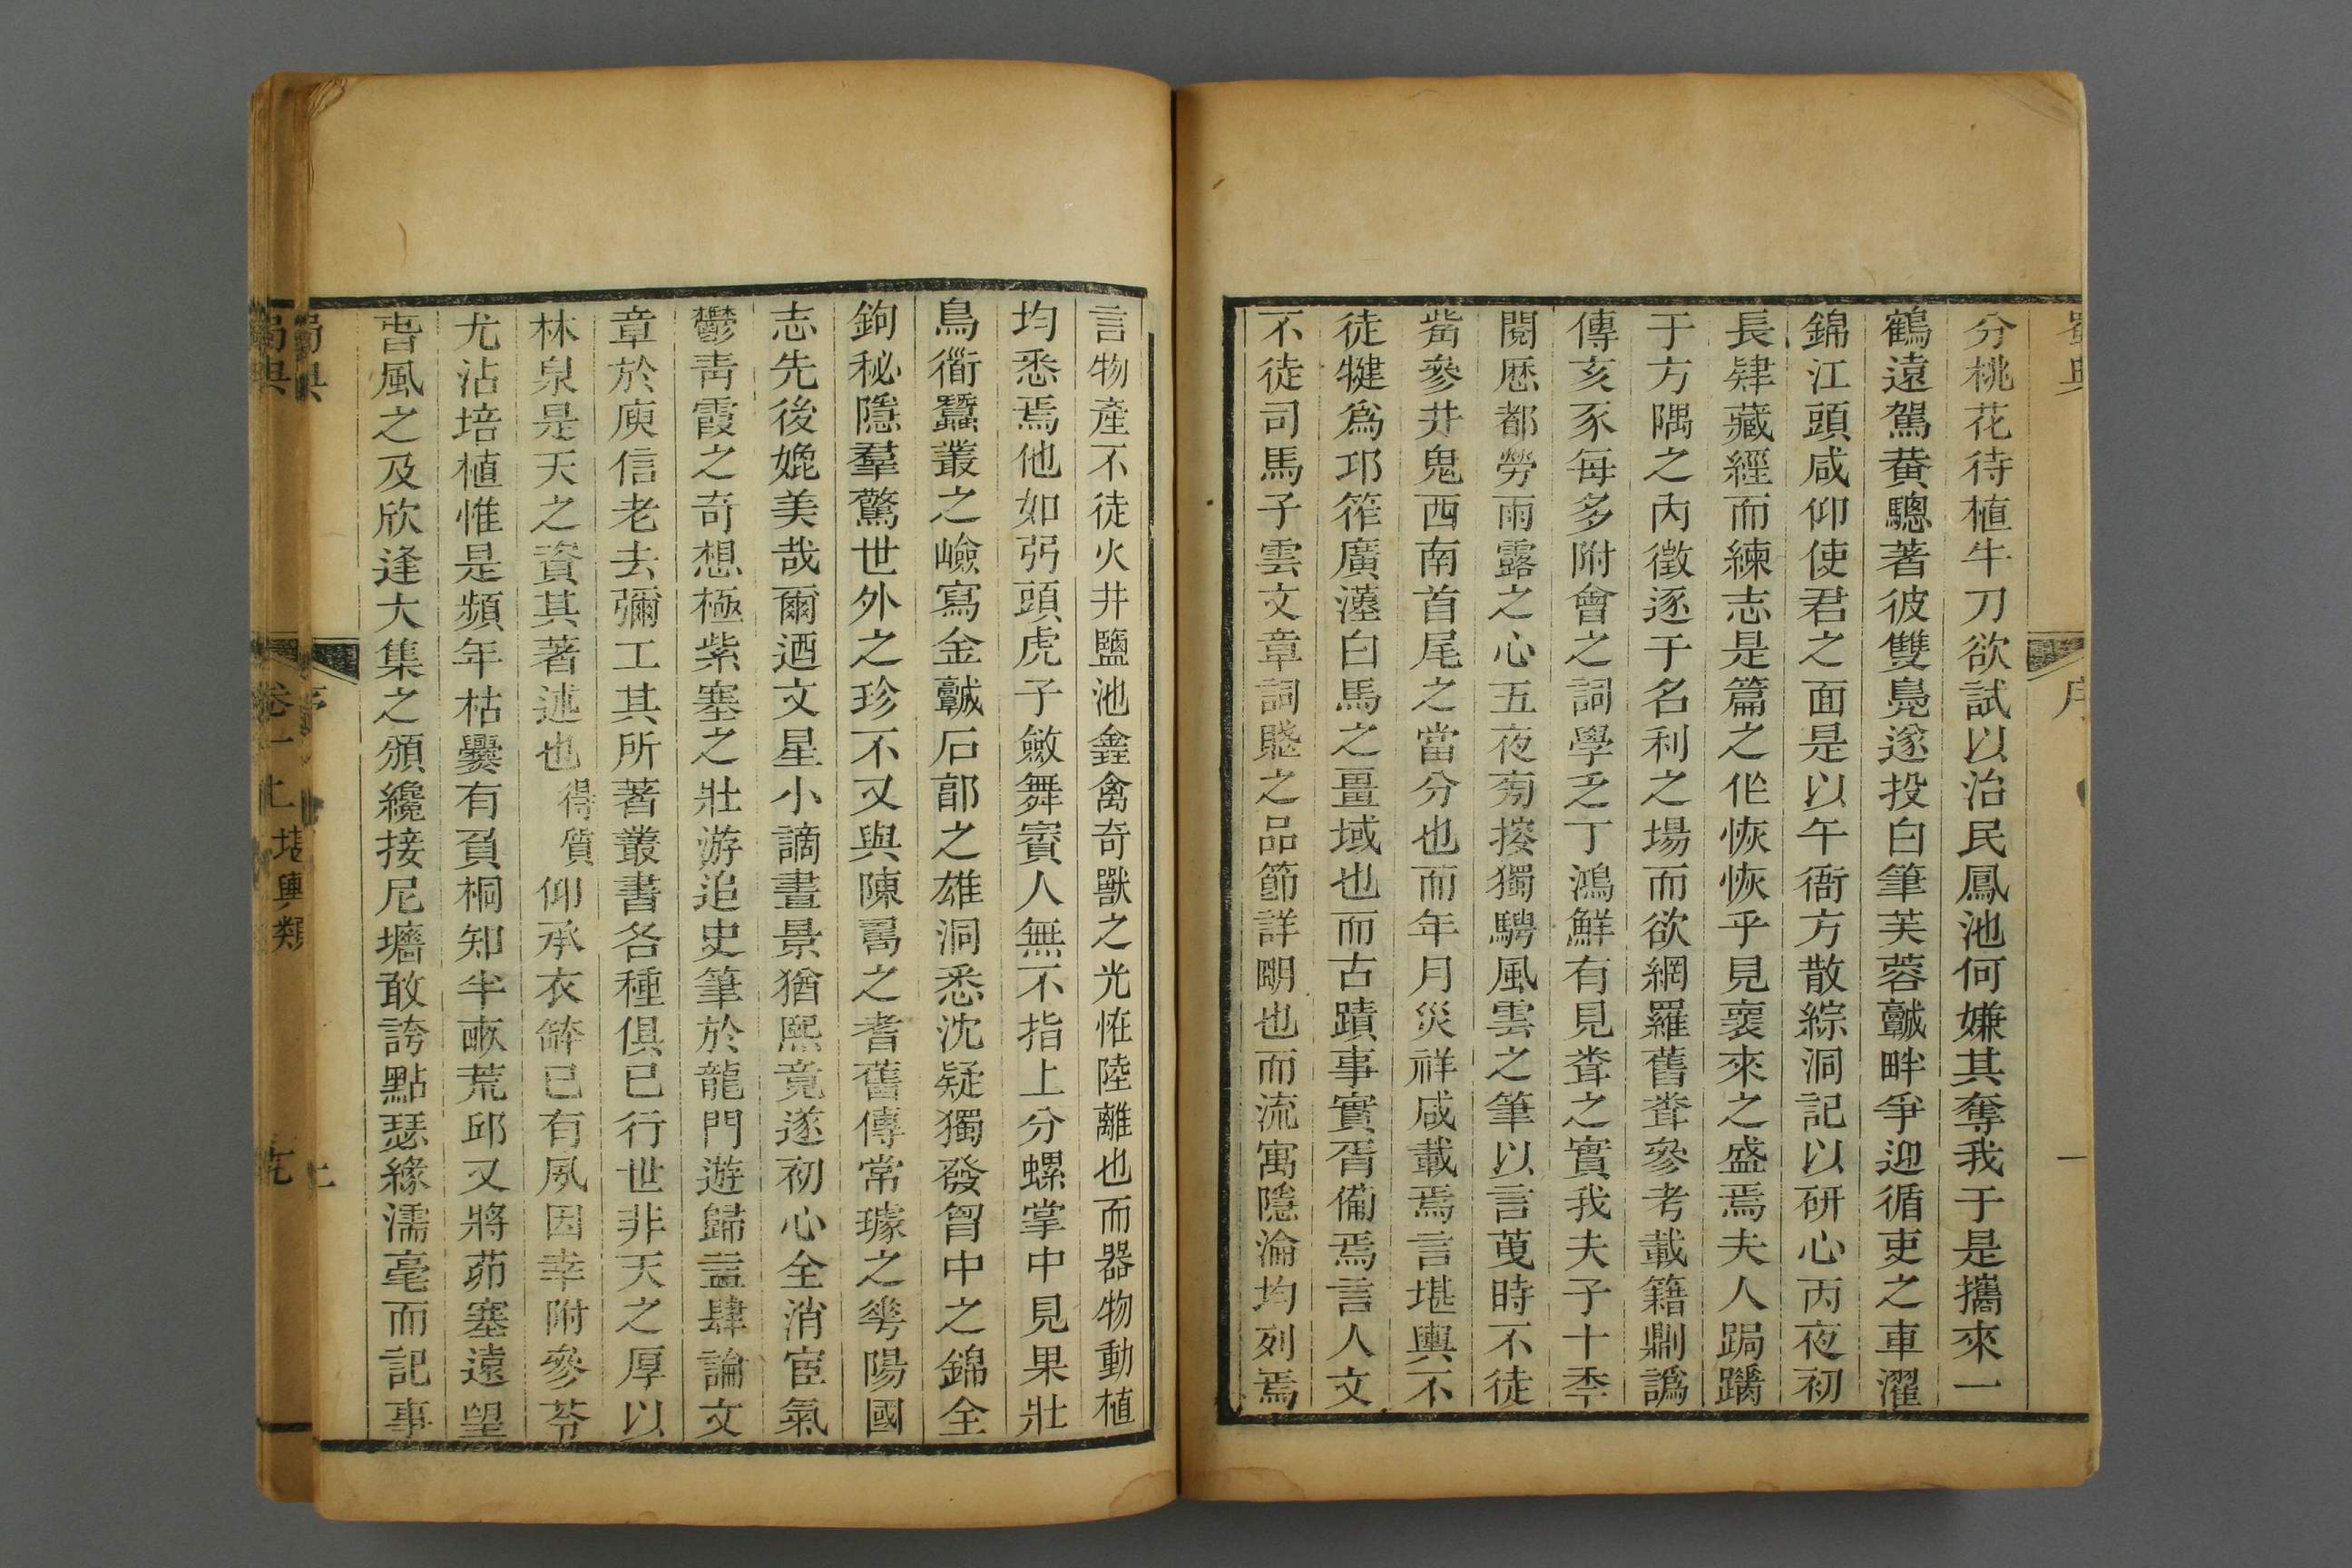 蜀典
序
一
分桃花待植牛刀欲試以治民鳳池何嫌其奪我于是攜來一
鶴遠駕黃驄著彼雙鳧遂投白筆芙蓉皾畔爭迎循吏之車濯
錦江頭咸仰使君之面是以午衙方散綜洞記以研心丙夜初
長肄藏經而練志是篇之作恢恢乎見裒來之盛焉夫人跼蹐
于方隅之內徵逐于名利之場而欲網羅舊聋參考載籍鼎譌
傳亥豕每多附會之詞學乏丁鴻鮮有見聋之實我夫子十秊
閱歷都勞雨露之心五夜旁搜獨騁風雲之筆以言蒐時不徒
觜參井鬼西南首尾之當分也而年月災祥咸載焉言堪輿不
徒犍爲邛筰廣漢白馬之畺域也而古蹟事實胥備焉言人文
不徒司馬子雲文章詞賦之品節詳明也而流寓隱淪均列焉
言物產不徒火井鹽池鑫禽奇獸之光怪陸離也而器物動植
均悉焉他如弜頭虎子斂舞賨人無不指上分螺掌中見果壯
鳥衜蠶叢之嶮寫金皾石部之雄洞悉沈疑獨發胷中之錦全
鉤秘隱羣驚世外之珍不又與陳壽之耆舊傳常璩之華陽國
志先後媲美哉爾迺文星小謫晝景猶熙竟遂初心全消宦氣
鬱靑霞之奇想極紫塞之壯游追史筆於龍門遊歸盍肆論文
章於庾信老去彌工其所著叢書各種俱已行世非天之厚以
林泉是天之資其著述也得質仰承衣缽已有夙因幸附參苓
尤沾培植惟是頻年枯爨有負桐知半畝荒邱又將茆塞遠望
舂風之及欣逢大集之頒纔接尼牆敢誇點瑟緣濡毫而記事
序
二
蜀典
卷一上
堪輿類